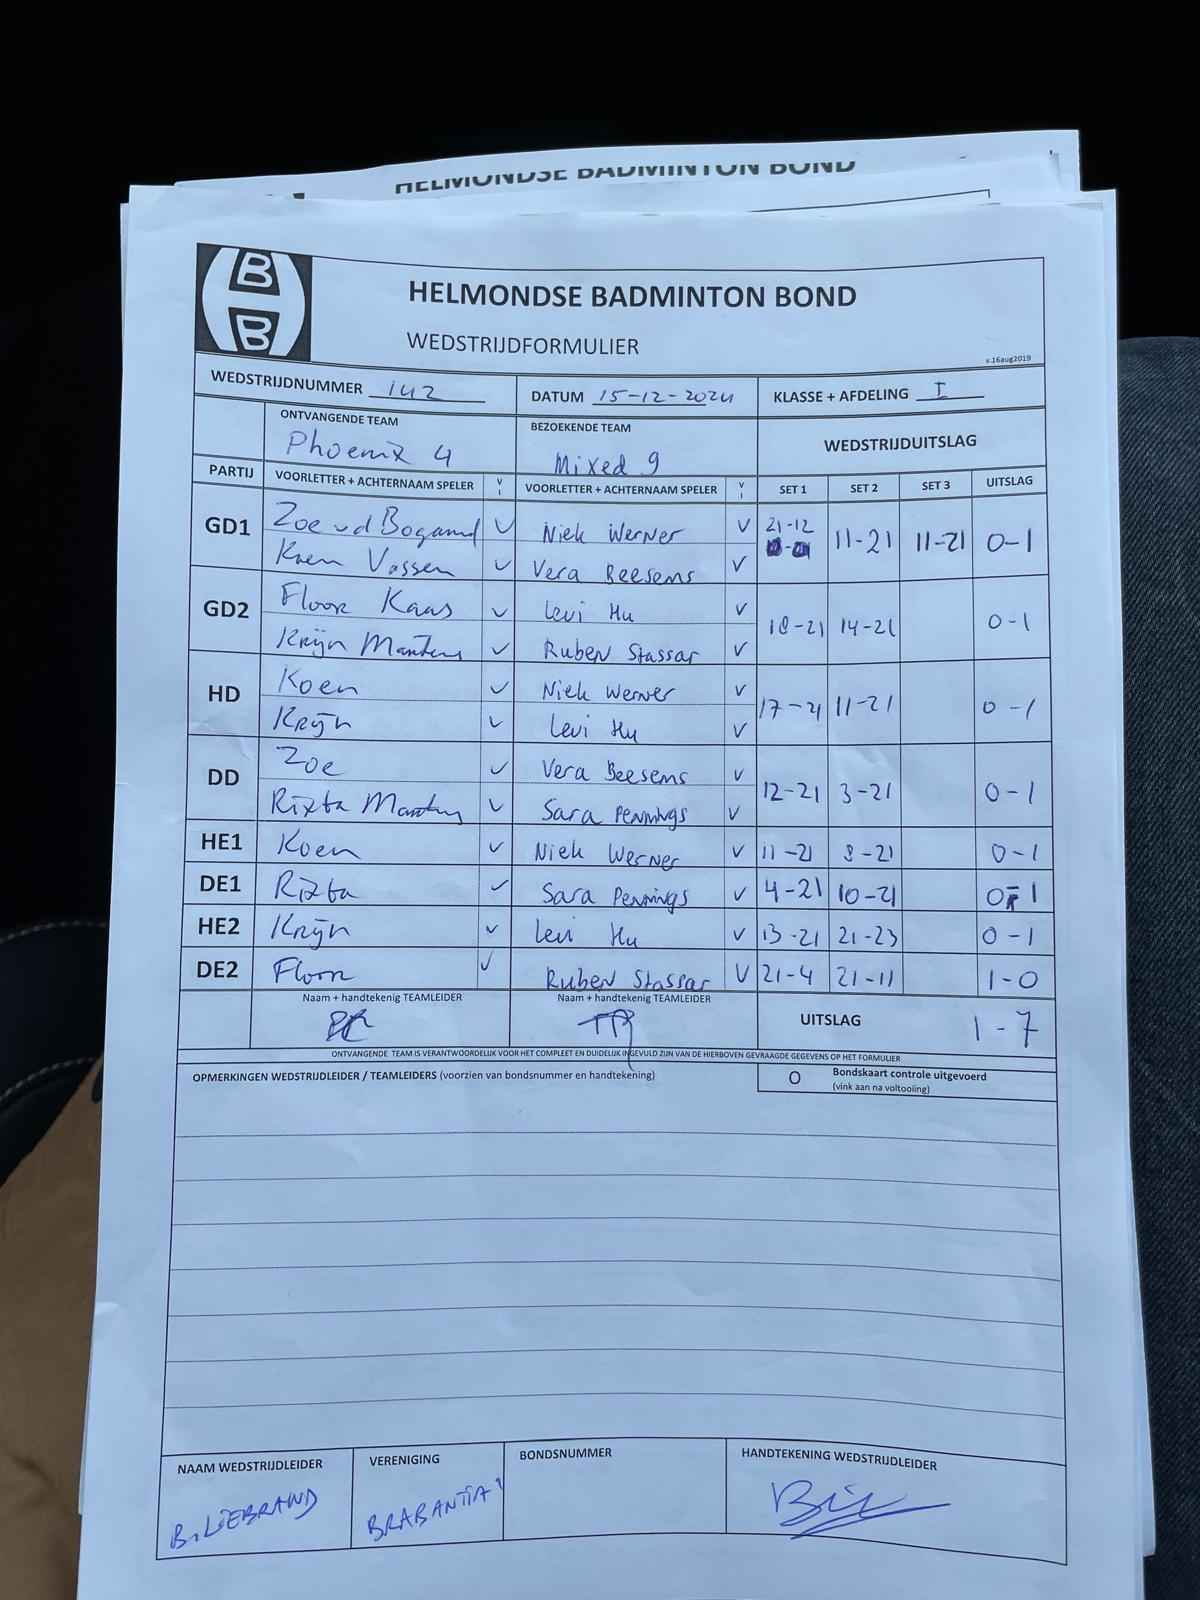 HELMONDSE BADMINTON BOND
B B
HELMONDSE BADMINTON BOND
WEDSTRIJDFORMULIER
v.16aug2019
WEDSTRIJDNUMMER 142 DATUM 15-12-2024 KLASSE + AFDELING I
ONTVANGENDE TEAM BEZOEKENDE TEAM WEDSTRIJDUITSLAG
Phoenix 4 Mixed 9
PARTIJ VOORLETTER + ACHTERNAAM SPELER V I VOORLETTER + ACHTERNAAM SPELER V I SET 1 SET 2 SET 3 UITSLAG
GD1 Zoe vd Bogaard V Niek Werner V 21-12 11-21 11-21 0-1
Koen Vossen V Vera Beesems V
GD2 Floor Kaas V Levi Hu V 18-21 14-21 0-1
Krijn Martens V Ruben Stassar V
HD Koen V Niek Werner V 17-21 11-21 0-1
Krijn V Levi Hu V
DD Zoe V Vera Beesems V 12-21 3-21 0-1
Rixta Martens V Sara Pennings V
HE1 Koen V Niek Werner V 11-21 8-21 0-1
DE1 Rixta V Sara Pennings V 4-21 10-21 0-1
HE2 Krijn V Levi Hu V 13-21 21-23 0-1
DE2 Floor V Ruben Stassar V 21-4 21-11 1-0
Naam + handtekenig TEAMLEIDER Naam + handtekenig TEAMLEIDER UITSLAG 1-7
ONTVANGENDE TEAM IS VERANTWOORDELIJK VOOR HET COMPLEET EN DUIDELIJK INGEVULD ZIJN VAN DE HIERBOVEN GEVRAAGDE GEGEVENS OP HET FORMULIER
OPMERKINGEN WEDSTRIJDLEIDER / TEAMLEIDERS (voorzien van bondsnummer en handtekening) O Bondskaart controle uitgevoerd
(vink aan na voltooling)
NAAM WEDSTRIJDLEIDER VERENIGING BONDSNUMMER HANDTEKENING WEDSTRIJDLEIDER
BRABANTIA